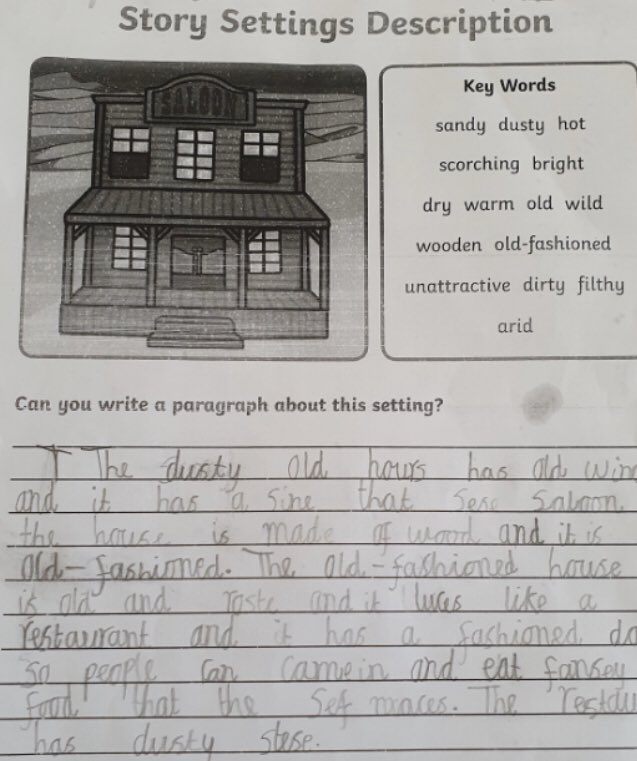 Story Settings Description
SALOON
Key Words
sandy dusty hot
scorching bright
dry warm old wild
wooden old-fashioned
unattractive dirty filthy
arid
Can you write a paragraph about this setting?
The dusty old hours has old win
and it has a sine that sese Saloon.
the house is made of wood and it is
old-fashioned. The old-fashioned house
is old and roste and it lucs like a
restaurant and it has a fashioned do
so people can came in and eat fansey
food that the Sef maces. The restau
has dusty stese.